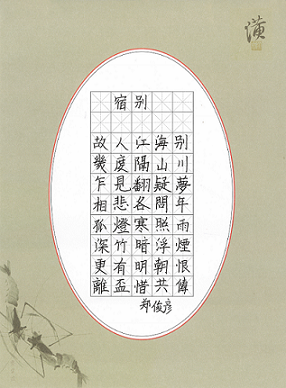 宿别
故人江海别
幾度隔山川
乍見翻疑夢
相悲各問年
孤燈寒照雨
深竹暗浮煙
更有明朝恨
離盃惜共傳
郑俊彦